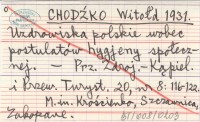 CHODŹKO Witold 1931.
Uzdrowiska polskie wobec
postulatów hygjeny społecz-
nej. — Prz. Zdroj.-Kąpiel.
i Przew. Turyst. 20, nr 8: 116-122.
M.in. Krościenko, Szczawnica,
Zakopane.